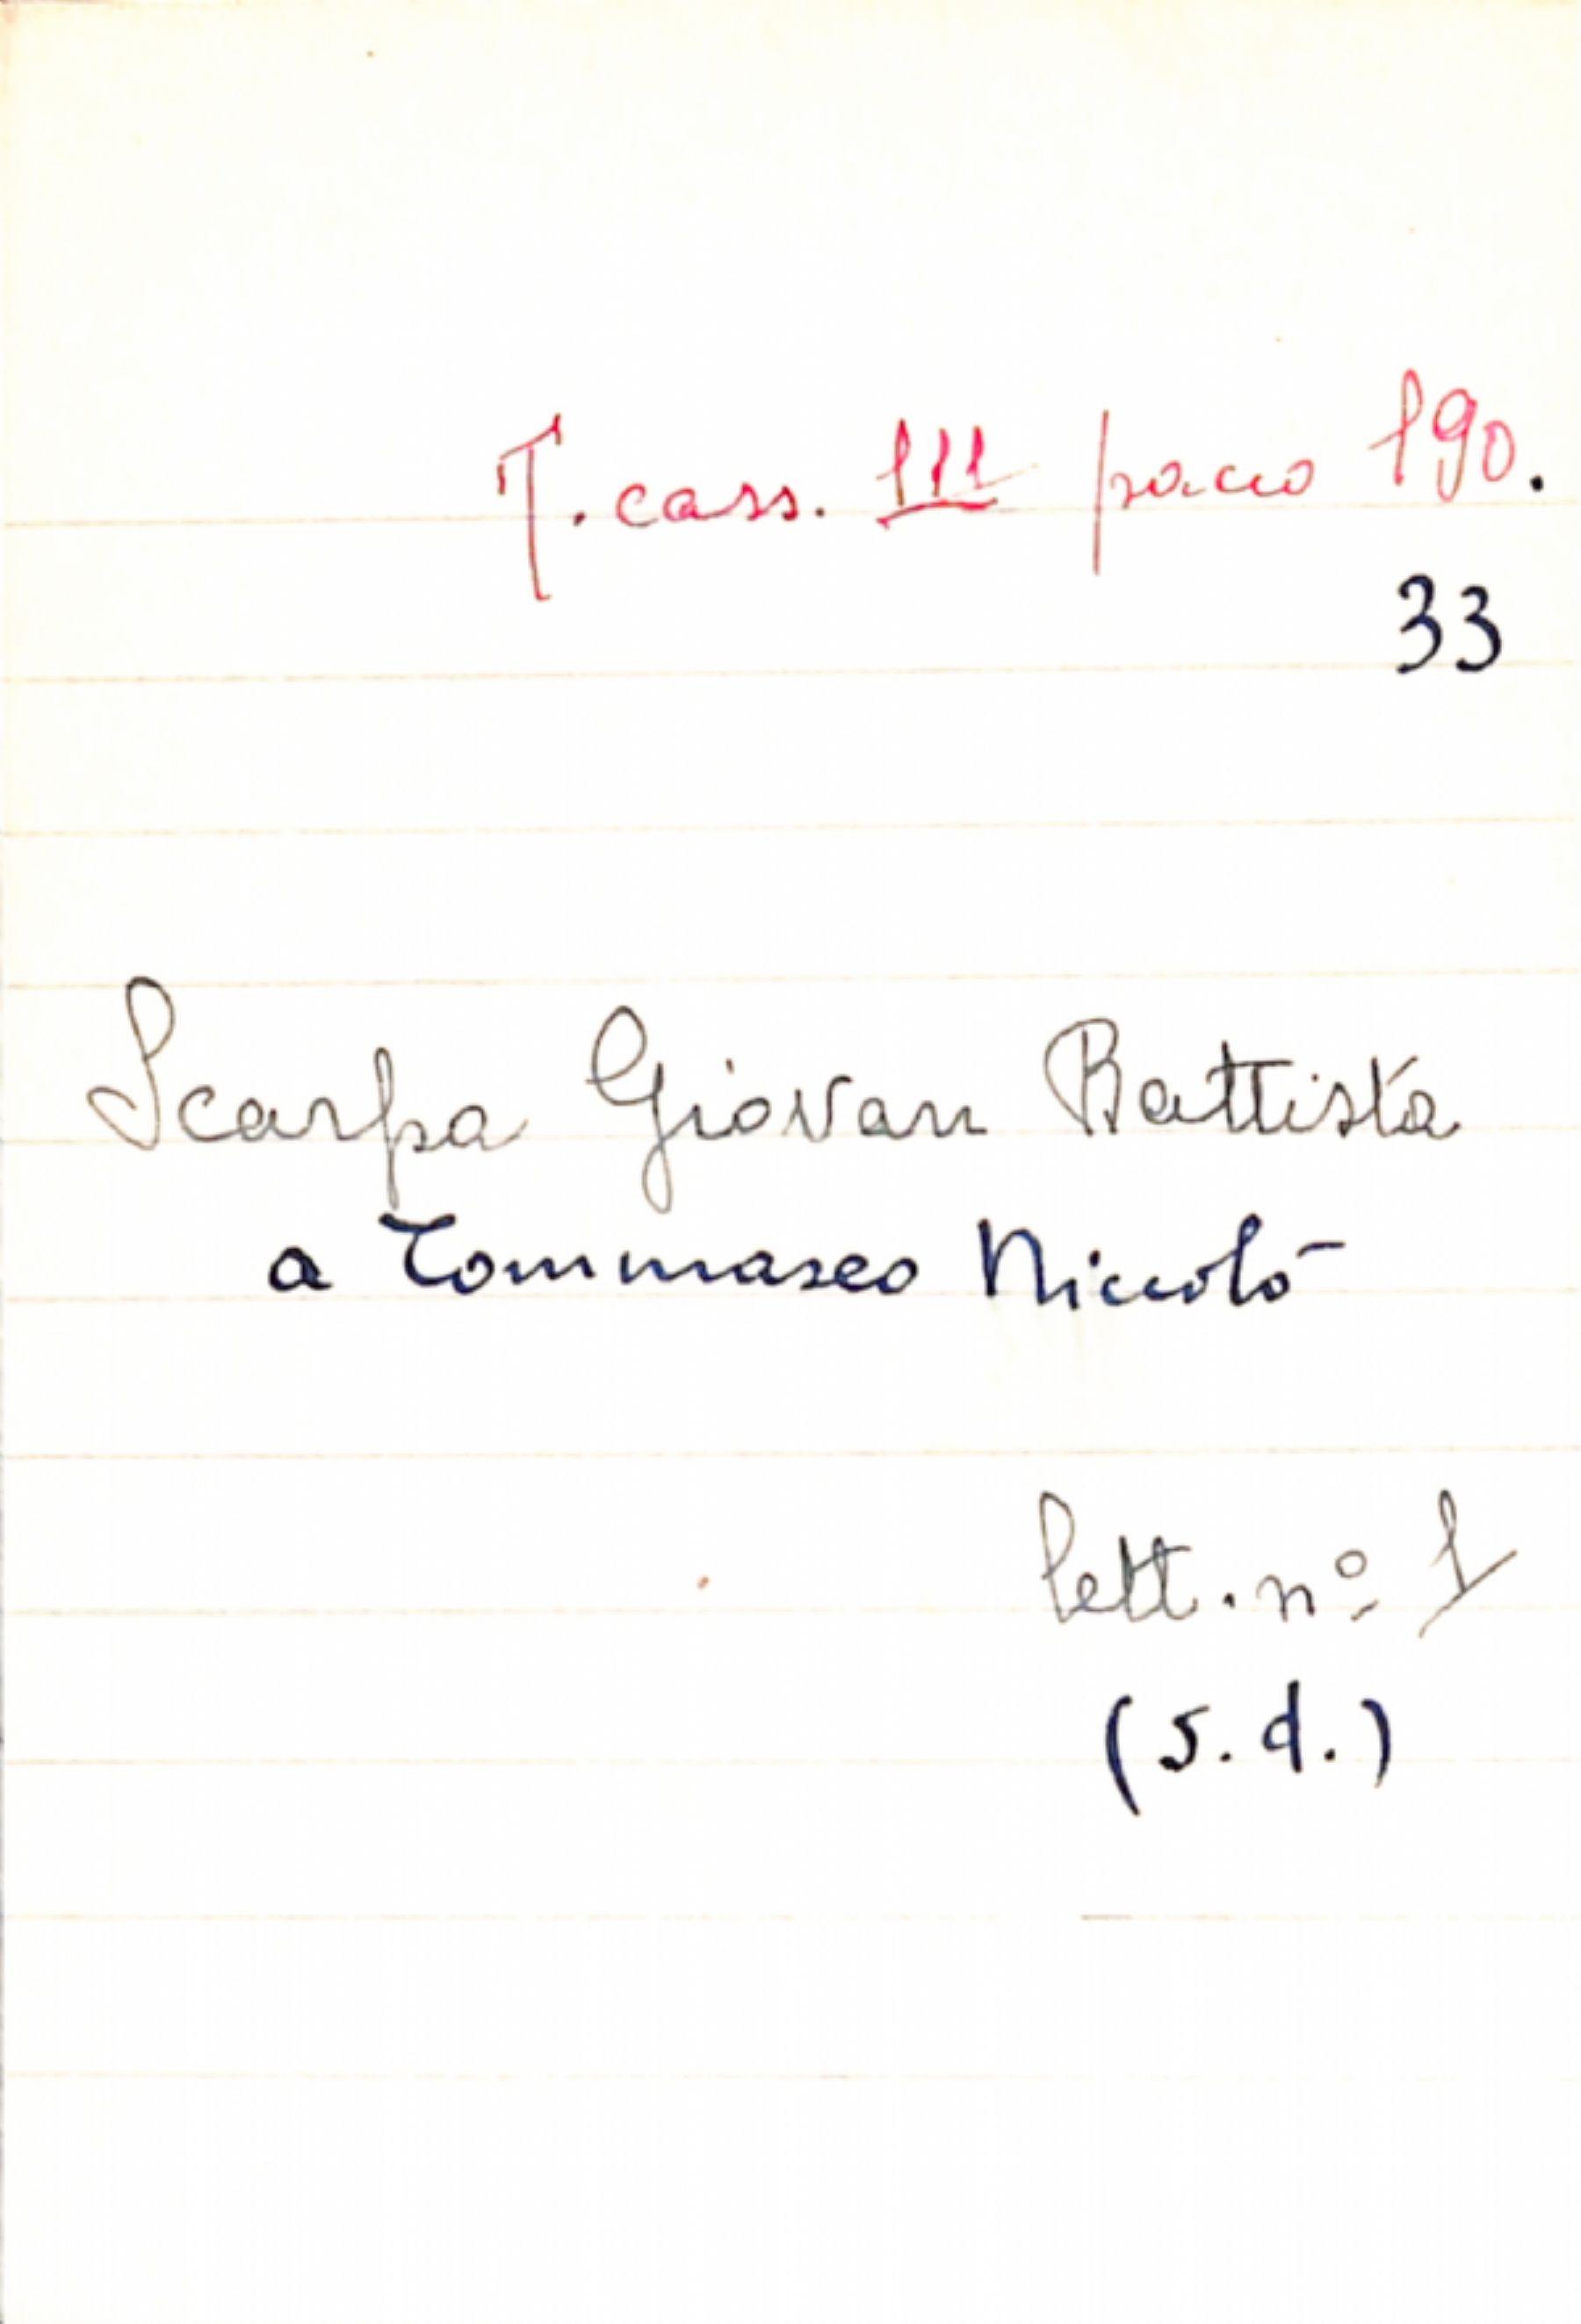 T. cass. III pacco 190.
33
Scarpa Giovan Battista
a Tommaseo Niccolò
lett. nº 1
(s. d.)